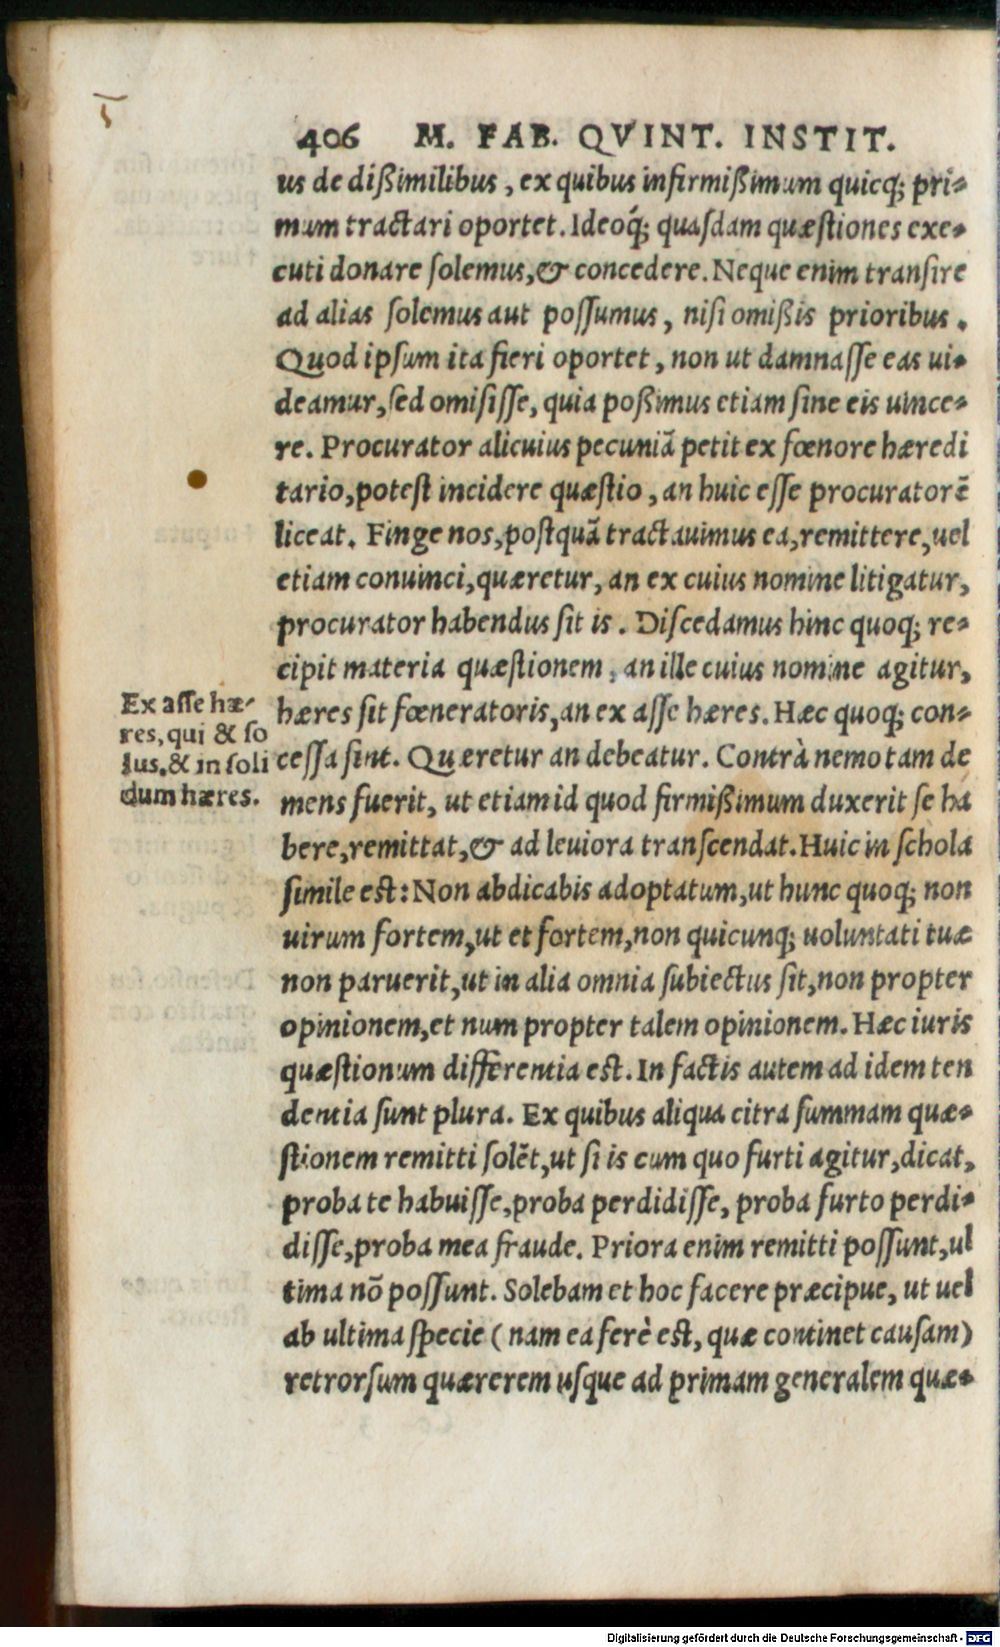 406 M. FAB. QVINT. INSTIT.
us de dißimilibus, ex quibus infirmißimum quicq; pri-
mum tractari oportet. Ideoq́; quasdam quæstiones exe-
cuti donare solemus, & concedere. Neque enim transire
ad alias solemus aut possumus, nisi omißis prioribus.
Quod ipsum ita fieri oportet, non ut damnasse eas ui-
deamur, sed omisisse, quia poßimus etiam sine eis uince-
re. Procurator alicuius pecuniã petit ex fœnore hæredi
tario, potest incidere quæstio, an huic esse procuratorẽ
liceat. Finge nos, postquã tractauimus ea, remittere, uel
etiam conuinci, quæretur, an ex cuius nomine litigatur,
procurator habendus sit is. Discedamus hinc quoq; re-
cipit materia quæstionem, an ille cuius nomine agitur,
hæres sit fœneratoris, an ex asse hæres. Hæc quoq; con-
cessa sint. Quæretur an debeatur. Contrà nemo tam de
mens fuerit, ut etiam id quod firmißimum duxerit se ha
bere, remittat, & ad leuiora transcendat. Huic in schola
simile est: Non abdicabis adoptatum, ut hunc quoq; non
uirum fortem, ut et fortem, non quicunq; uoluntati tuæ
non paruerit, ut in alia omnia subiectus sit, non propter
opinionem, et num propter talem opinionem. Hæc iuris
quæstionum differentia est. In factis autem ad idem ten
dentia sunt plura. Ex quibus aliqua citra summam quæ-
stionem remitti solẽt, ut si is cum quo furti agitur, dicat,
proba te habuisse, proba perdidisse, proba furto perdi-
disse, proba mea fraude. Priora enim remitti possunt, ul
tima nõ possunt. Solebam et hoc facere præcipue, ut uel
ab ultima specie (nam ea ferè est, quæ continet causam)
retrorsum quærerem usque ad primam generalem quæ-
Ex asse hæ-
res, qui & so
lus, & in soli
dum hæres.
Digitalisierung gefördert durch die Deutsche Forschungsgemeinschaft - DFG